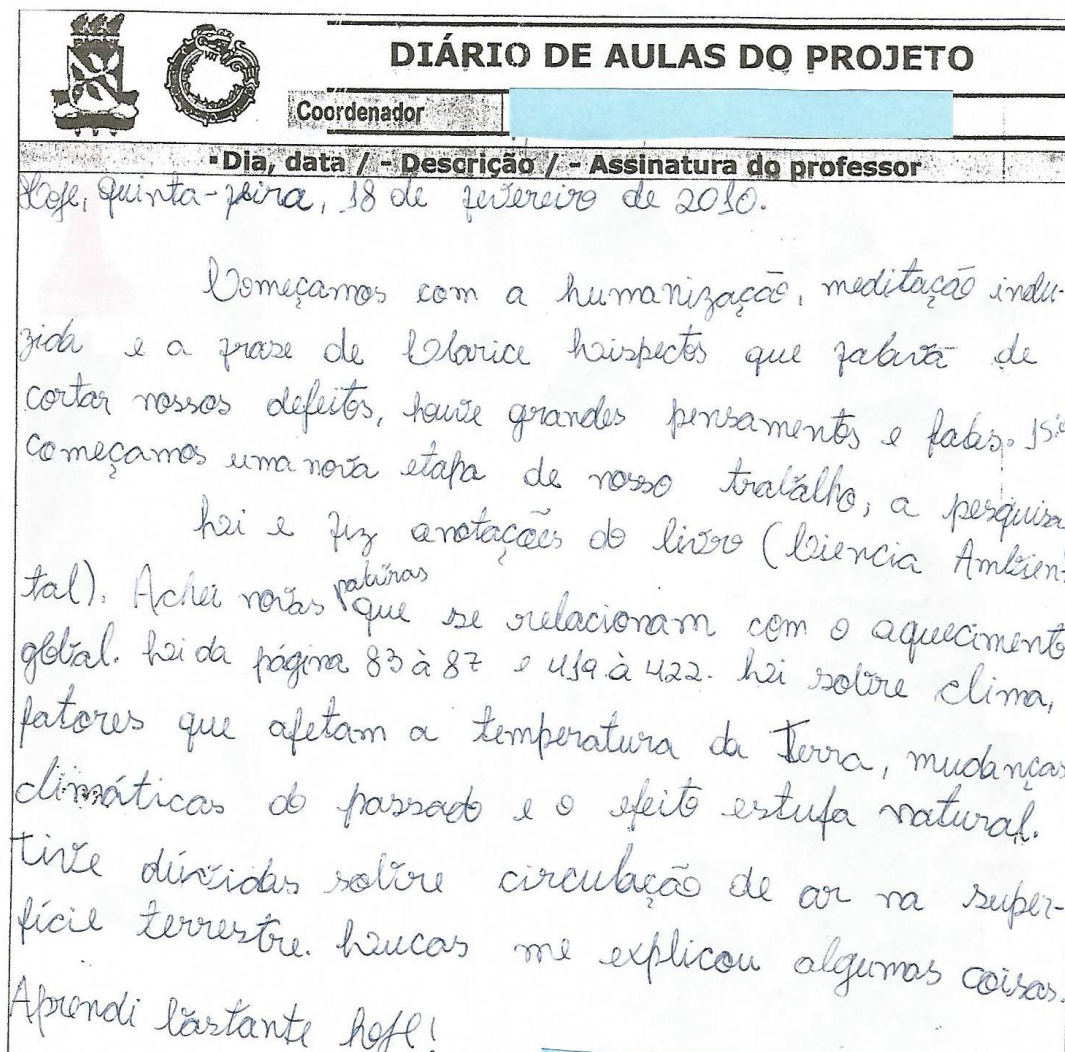 DIÁRIO DE AULAS DO PROJETO
Coordenador
Dia, data / - Descrição / - Assinatura do professor
Hoje, quinta-feira, 18 de fevereiro de 2010.
Começamos com a humanização, meditação indu-
zida e a fraze de Clarice Lispectos que falava de
cortar nossos defeitos, houve grandes pensamentos e falas.
começamos uma nova etapa de nosso trabalho, a pesquisa
Li e fiz anotações do livro (Ciencia Ambien-
tal). Achei novas palavras que se relacionam com o aquecimento
global. Li da página 83 à 87 e 419 à 422. Li sobre clima,
fatores que afetam a temperatura da Terra, mudanças
climáticas do passado e o efeito estufa natural.
Tive dúvidas sobre circulação de ar na super-
fície terrestre. Lucas me explicou algumas coisas.
Aprendi bastante hoje!